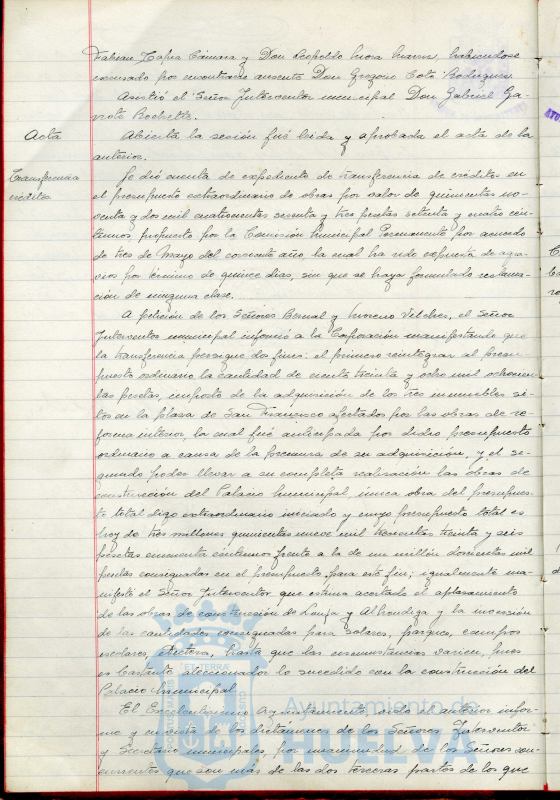 Fabian Tapia Cámara y Don Leopoldo Mora habiendose
excusado por encontrarse ausente Don Gregorio Coto Rodriguez
Asistió el Señor Interventor municipal Don Gabriel Ga-
rrote
Acta
Abierta la sesión fué leida y aprobada el acta de la
anterior.
Transferencia
crédito
Se dió cuenta de expediente de transferencia de créditos en
el presupuesto extraordinario de obras por valor de quinientas no-
venta y dos mil cuatrocientas sesenta y tres pesetas setenta y cuatro cén-
timos propuesto por la Comisión Municipal Permanente por acuerdo
de tres de Mayo del corriente año, la cual ha sido expuesta de agra-
vios por término de quince dias, sin que se haya formulado reclama-
ción de ninguna clase.
A petición de los Señores Bernal y Moreno Vilches, el Señor
Interventor municipal informó a la Corporación manifestando que
la transferencia persigue dos fines: el primero reintegrar al presu-
puesto ordinario la cantidad de ciento treinta y ocho mil ochocien-
tas pesetas, importe de la adquisición de los tres inmuebles si-
tos en la plaza de San Francisco afectados por las obras de re-
forma interior la cual fué anticipada por dicho presupuesto
ordinario a causa de la premura de su adquisición, y el se-
gundo poder llevar a su completa realización las obras de
construcción del Palacio Municipal, única obra del presupues-
to total digo extraordinario iniciado y cuyo presupuesto total es
hoy de tres millones quinientas nueve mil trescientas treinta y seis
pesetas cincuenta céntimos frente a la de un millón doscientas mil
pesetas consignadas en el presupuesto para este fin; igualmente ma-
nifestó el Señor Interventor que estima acertado el aplazamiento
de las obras de construcción de Lonja y Alhondiga y la inversión
de las cantidades consignadas para solares, parques, campos
escolares, etcétera, hasta que las circunstancias varien, pues
es bastante aleccionador lo sucedido con la construcción del
Palacio Municipal
El Excelentísimo Ayuntamiento, oido el anterior infor-
me y en vista de los dictamenes de los Señores Interventor
y Secretario municipales, por unanimidad de los Señores con-
currentes que son más de las dos terceras partes de los que
Ayuntamiento de
HUELVA